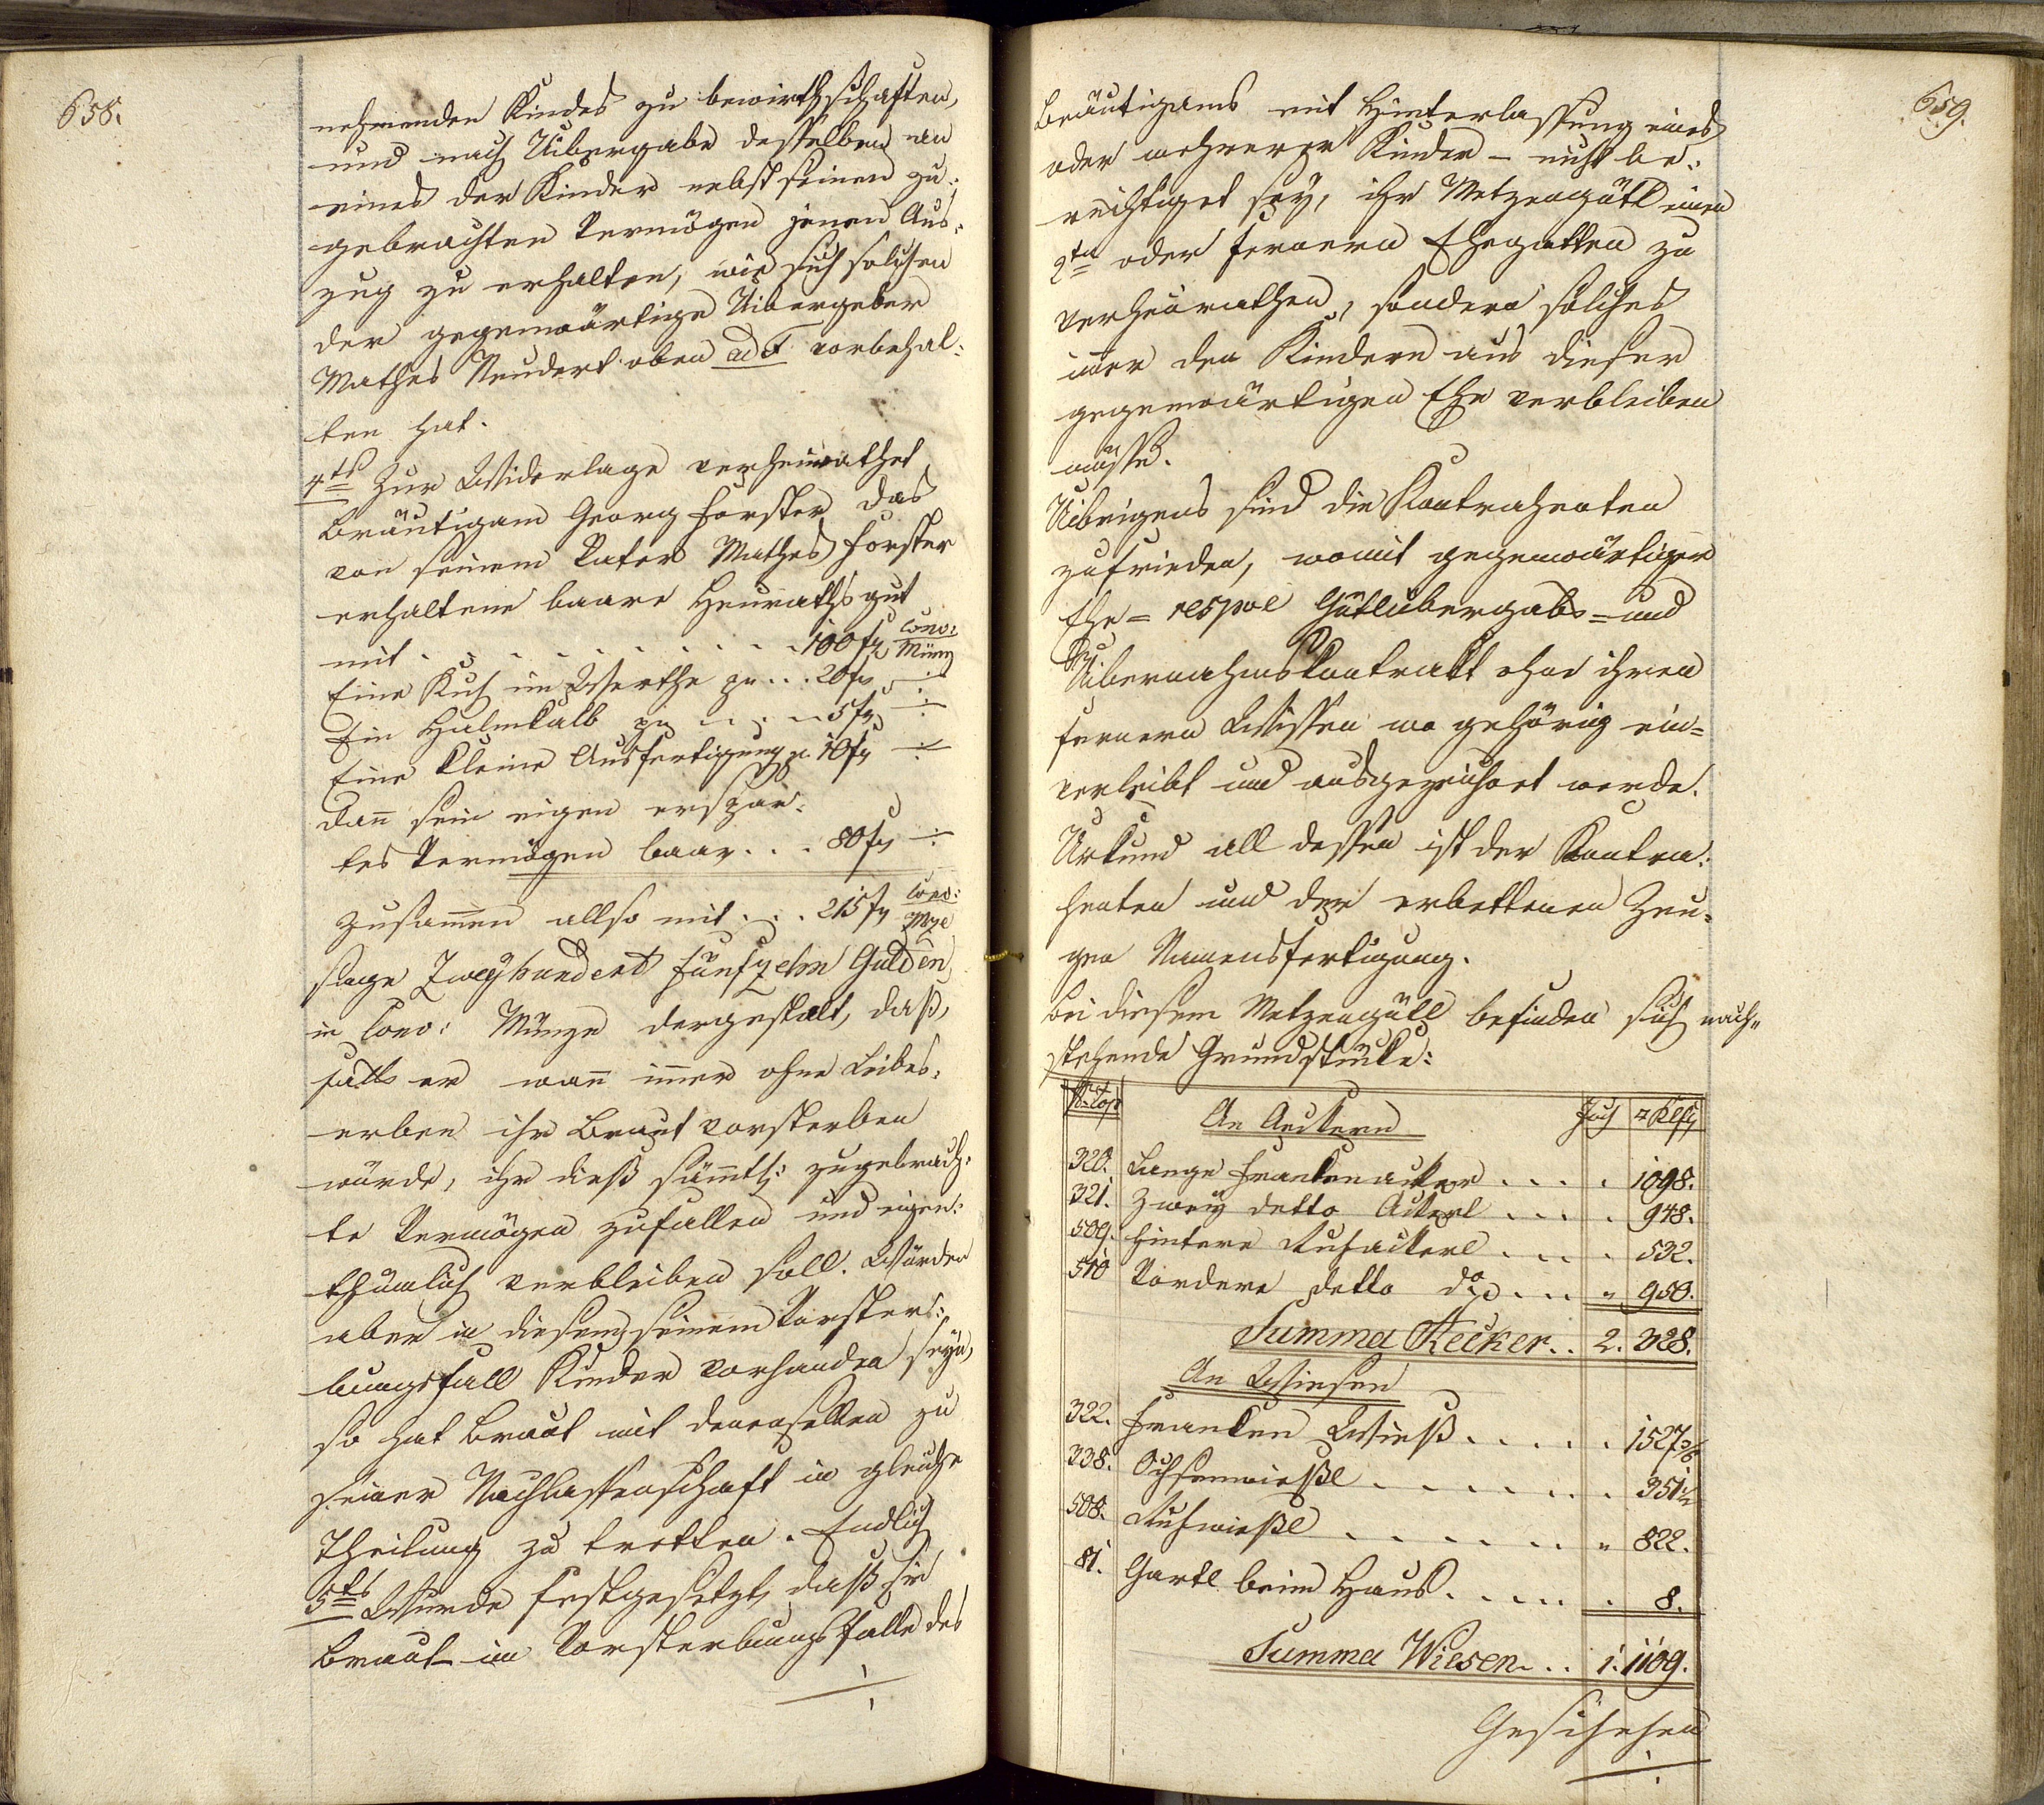 658.
nehmenden Kindes zu bewirthschaften,
und nach Uibergabe desselben an
eines der Kinder nebst seinen zu:
gebrachten Vermögen jenen Aus:
zug zu erhalten, wie sich solchen
der gegenwärtige Uibergeber
Mathes Neudert oben ad F vorbehal:
ten hat.
4tes Zur Widerlage verheurathet
Bräutigam Georg Forster das
von seinem Vater Mathes Forster
erhaltene baare Heurathsgut
mit . . . . . . . . . 100 fl Conv: Münz
Eine Kuh im Werthe zu . . . 20 fl ÷
Ein Halmkalb zu . . . . 5 fl ÷
Eine kleine Ausfertigung zu 10 fl ÷
dann sein eigen erspar:
tes Vermögen baar . . . 80 fl ÷
zusammen allso mit . . . 215 fl Conv: Mze
sage Zweyhundert fünfzehn Gulden
in Conv: Münze dergestalt, daß,
falls er wann immer ohne Leibes:
erben ihr Braut vorsterben
würde, ihr dieß sämmtl: zugebrach:
te Vermögen zufallen und eigen:
thümlich verbleiben soll. Würden
aber in diesem seinem Vorster:
bungsfall Kinder vorhanden seyn,
so hat Braut mit denenselben zu
seiner Nachlassenschaft in gleiche
Theilung zu tretten. Endlich
5tes Wurde festgesetzt, daß sie
Braut im Vorsterbungsfalle des
659.
Bräutigams mit Hinterlassung eines
oder mehrerer Kinder – nicht be:
rechtiget sey, ihr Metzengütl einen
2ten oder fernern Ehegatten zu
verheurathen, sondern solches
immer den Kindern aus dieser
gegenwärtigen Ehe verbleiben
müsse.
Uibrigens sind die Kontrahenten
zufrieden, womit gegenwärtiger
Ehe= respve Gütlübergabs= und
Uibernahmskontrakt ohne ihren
fernern Wissen wo gehörig ein=
verleibt und ausgezeichnet werde.
Urkund all dessen ist der Kontra:
henten und der erbettenen Zeu:
gen Namensfertigung.
Bei diesem Metzengütl befinden sich nach"
stehende Grundstücke:
N: Top An Aeckern Joch □ Klft
320. Lange Frankenacker . . . . 1098.
321. Zwey detto Ackerl . . . . 948.
509. Hintere Ruhackerl . . . . 532.
510 Vordere detto do . . . " 950.
Summa Aecker . . 2. 328.
An Wiesen
322. Franken Wieß . . . . . 1527 3/6
338. Ochsenwießl . . . . . . 351 1/2
508. Ruhwießl . . . . . . " 822.
81. Gartl beim Haus . . . . . 8.
Summa Wiesen . . 1. 1109.
Geschehen